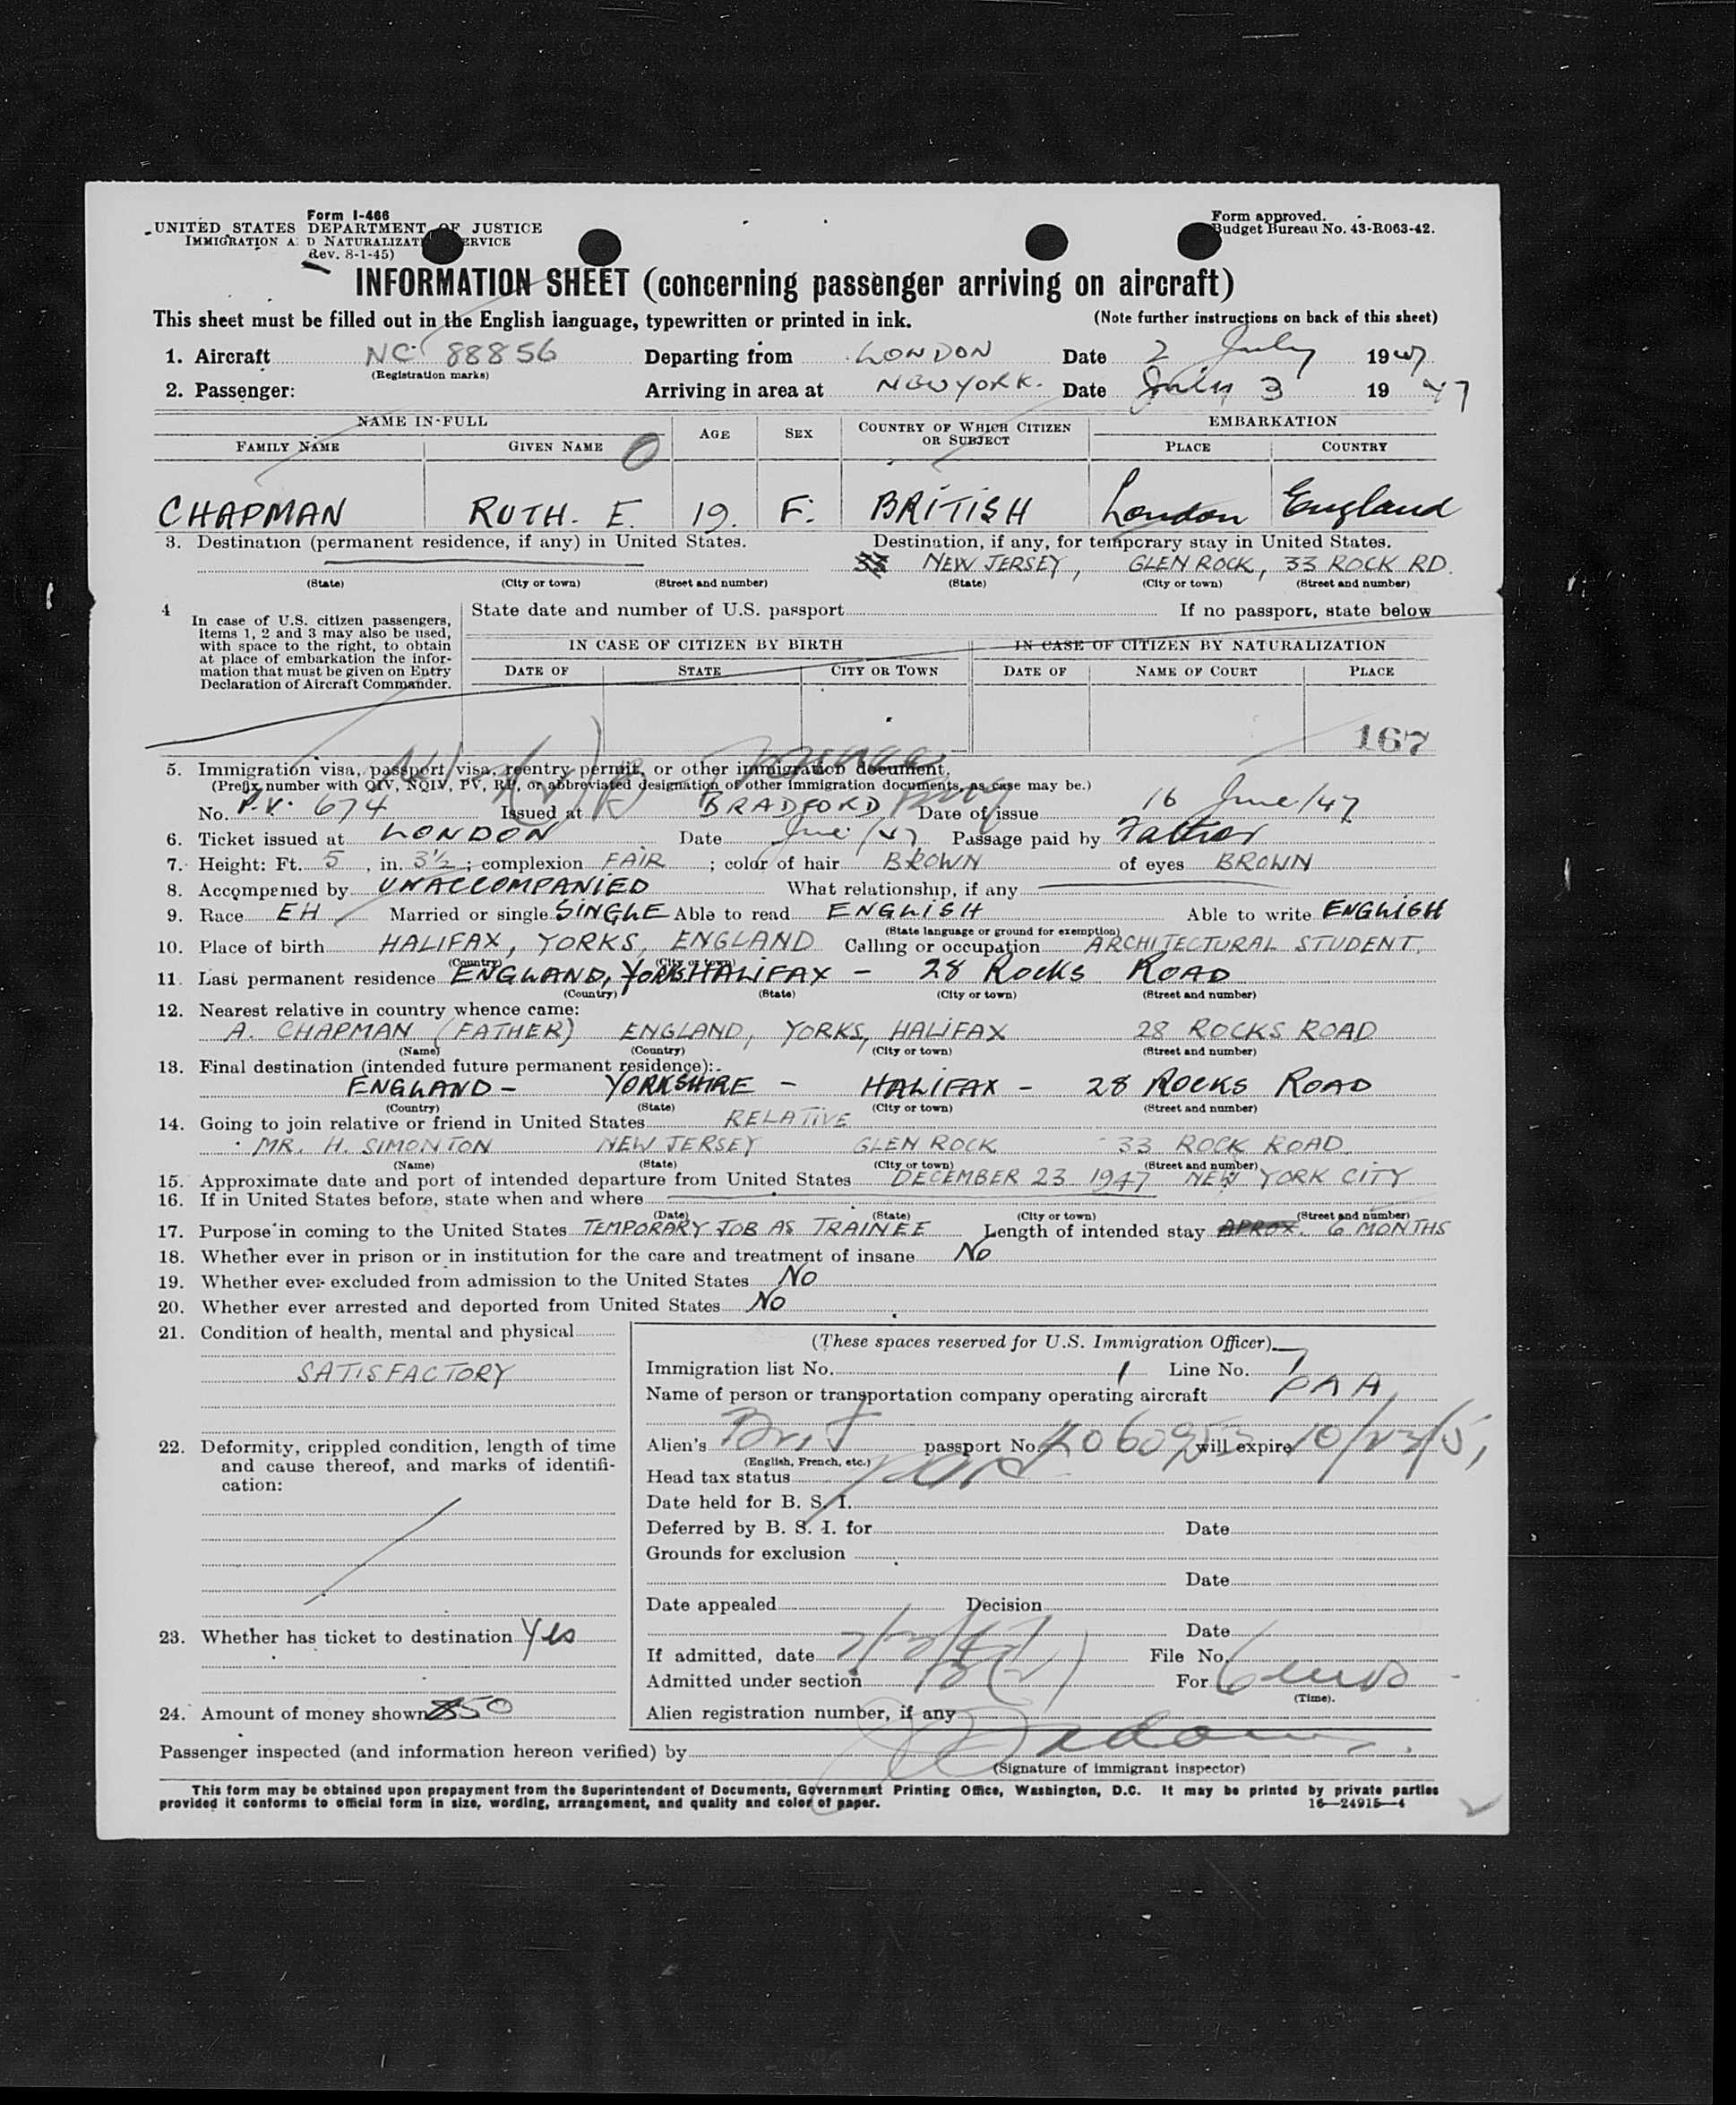 Form I-466
UNITED STATES DEPARTMENT OF JUSTICE
IMMIGRATION A D NATURALIZAT ERVICE
Rev. 8-1-45)
Form approved.
Budget Bureau No. 43-R063-42.
INFORMATION SHEET (concerning passenger arriving on aircraft)
This sheet must be filled out in the English language, typewritten or printed in ink. (Note further instructions on back of this sheet)
1. Aircraft NC 88856 Departing from LONDON Date 2 July 1947
(Registration marks)
2. Passenger: Arriving in area at NEW YORK. Date July 3 19 47
NAME IN FULL AGE SEX COUNTRY OF WHICH CITIZEN OR SUBJECT EMBARKATION
FAMILY NAME GIVEN NAME PLACE COUNTRY
CHAPMAN RUTH. E. 19. F. BRITISH London England
3. Destination (permanent residence, if any) in United States. Destination, if any, for temporary stay in United States.
33 NEW JERSEY, GLEN ROCK, 33 ROCK RD.
(State) (City or town) (Street and number) (State) (City or town) (Street and number)
4 In case of U.S. citizen passengers, items 1, 2 and 3 may also be used, with space to the right, to obtain at place of embarkation the information that must be given on Entry Declaration of Aircraft Commander.
State date and number of U.S. passport If no passport, state below
IN CASE OF CITIZEN BY BIRTH IN CASE OF CITIZEN BY NATURALIZATION
DATE OF STATE CITY OR TOWN DATE OF NAME OF COURT PLACE
167
5. Immigration visa, passport visa, reentry permit, or other immigration document.
(Prefix number with QIV, NQIV, PV, RP, or abbreviated designation of other immigration documents, as case may be.)
No. P.V. 674 Issued at BRADFORD Date of issue 16 June/47
6. Ticket issued at LONDON Date June /47 Passage paid by Father
7. Height: Ft. 5, in. 3½; complexion FAIR; color of hair BROWN of eyes BROWN
8. Accompanied by UNACCOMPANIED What relationship, if any
9. Race EH Married or single SINGLE Able to read ENGLISH Able to write ENGLISH
(State language or ground for exemption)
10. Place of birth HALIFAX, YORKS, ENGLAND Calling or occupation ARCHITECTURAL STUDENT.
(Country) (City or town)
11. Last permanent residence ENGLAND, YORKS. HALIFAX - 28 ROCKS ROAD
(Country) (State) (City or town) (Street and number)
12. Nearest relative in country whence came:
A. CHAPMAN (FATHER) ENGLAND, YORKS, HALIFAX 28 ROCKS ROAD
(Name) (Country) (City or town) (Street and number)
13. Final destination (intended future permanent residence):
ENGLAND - YORKSHIRE - HALIFAX - 28 ROCKS ROAD
(Country) (State) (City or town) (Street and number)
14. Going to join relative or friend in United States RELATIVE
MR. H. SIMONTON NEW JERSEY GLEN ROCK 33 ROCK ROAD.
(Name) (State) (City or town) (Street and number)
15. Approximate date and port of intended departure from United States DECEMBER 23 1947 NEW YORK CITY
16. If in United States before, state when and where
(Date) (State) (City or town) (Street and number)
17. Purpose in coming to the United States TEMPORARY JOB AS TRAINEE Length of intended stay APROX. 6 MONTHS
18. Whether ever in prison or in institution for the care and treatment of insane No
19. Whether ever excluded from admission to the United States No
20. Whether ever arrested and deported from United States No
21. Condition of health, mental and physical
SATISFACTORY
22. Deformity, crippled condition, length of time
and cause thereof, and marks of identifi-
cation:
23. Whether has ticket to destination Yes
24. Amount of money shown 50
(These spaces reserved for U.S. Immigration Officer)
Immigration list No. 1 Line No. 1
Name of person or transportation company operating aircraft PAA
Alien's Brit passport No. will expire 10/23/51
(English, French, etc.)
Head tax status
Date held for B. S. I.
Deferred by B. S. I. for Date
Grounds for exclusion
Date
Date appealed Decision
Date
If admitted, date 7/3/47 File No.
Admitted under section 3(2) For 6 mos
(Time).
Alien registration number, if any
Passenger inspected (and information hereon verified) by
(Signature of immigrant inspector)
This form may be obtained upon prepayment from the Superintendent of Documents, Government Printing Office, Washington, D.C. It may be printed by private parties
provided it conforms to official form in size, wording, arrangement, and quality and color of paper. 16—24915-4